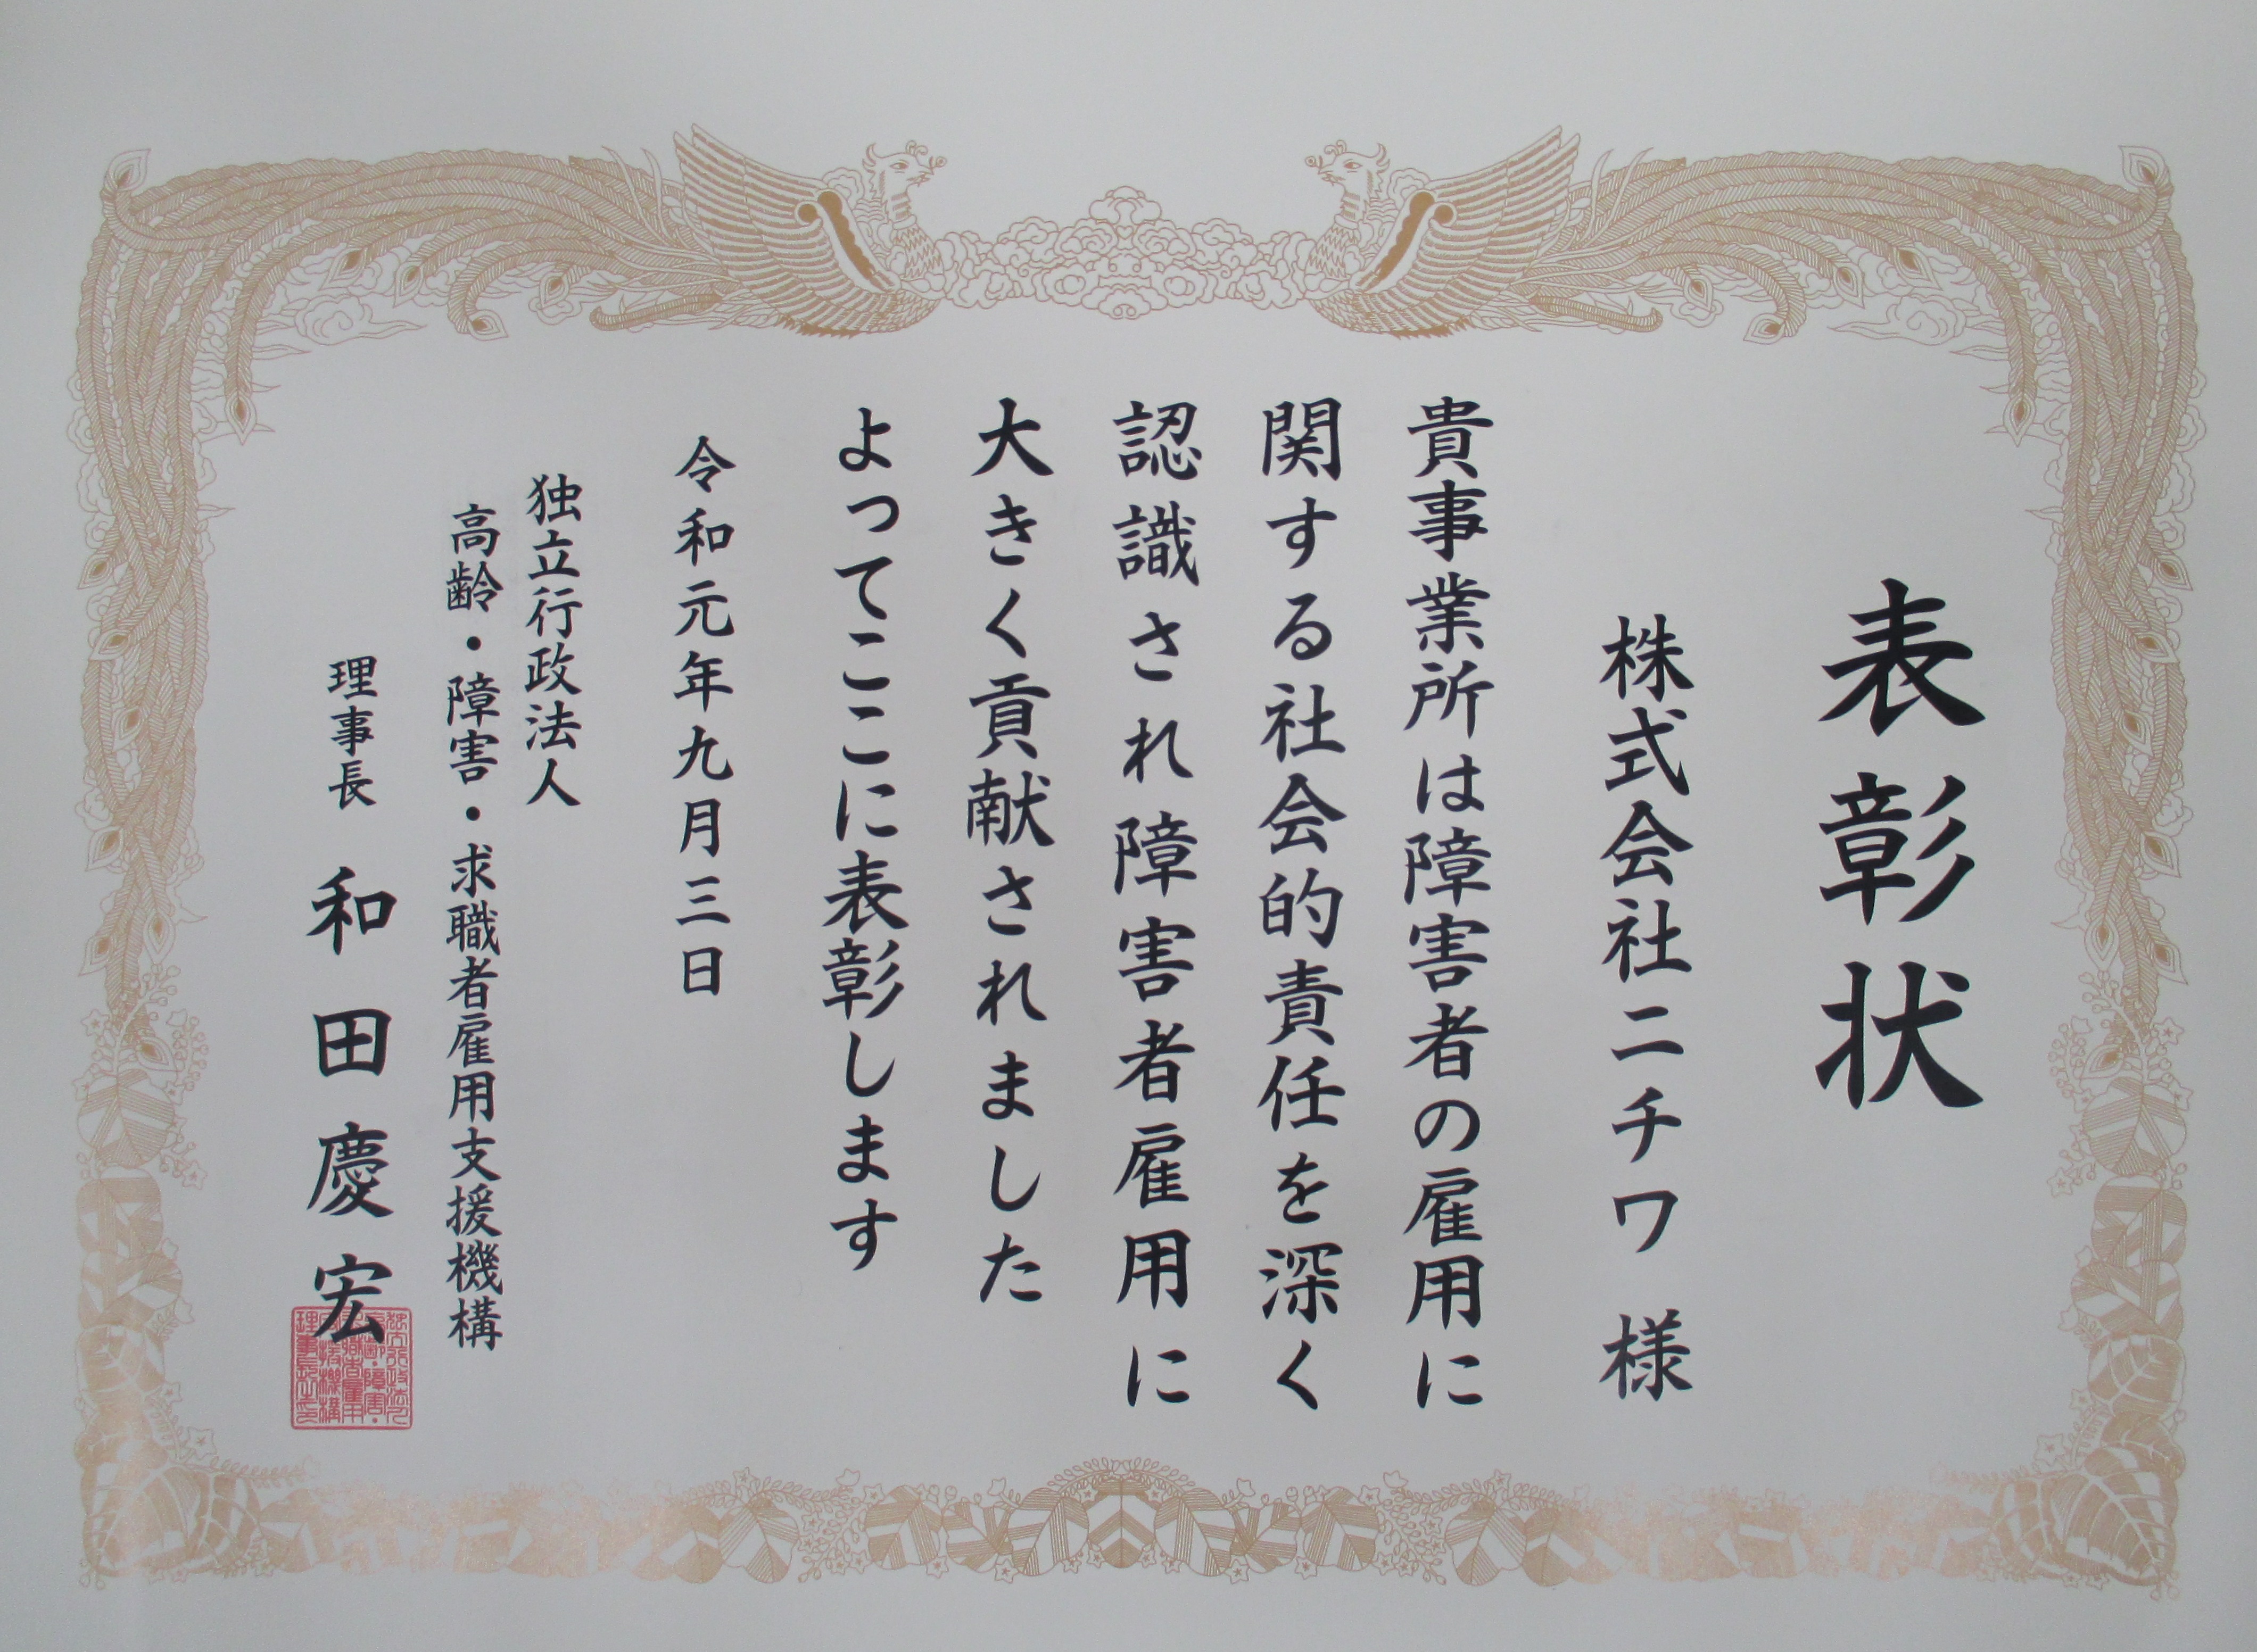 表彰状
株式会社ニチワ 様
貴事業所は障害者の雇用に
関する社会的責任を深く
認識され障害者雇用に
大きく貢献されました
よってここに表彰します
令和元年九月三日
独立行政法人
高齢・障害・求職者雇用支援機構
理事長 和田慶宏